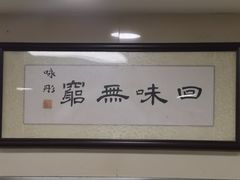 回味無窮
咏彤